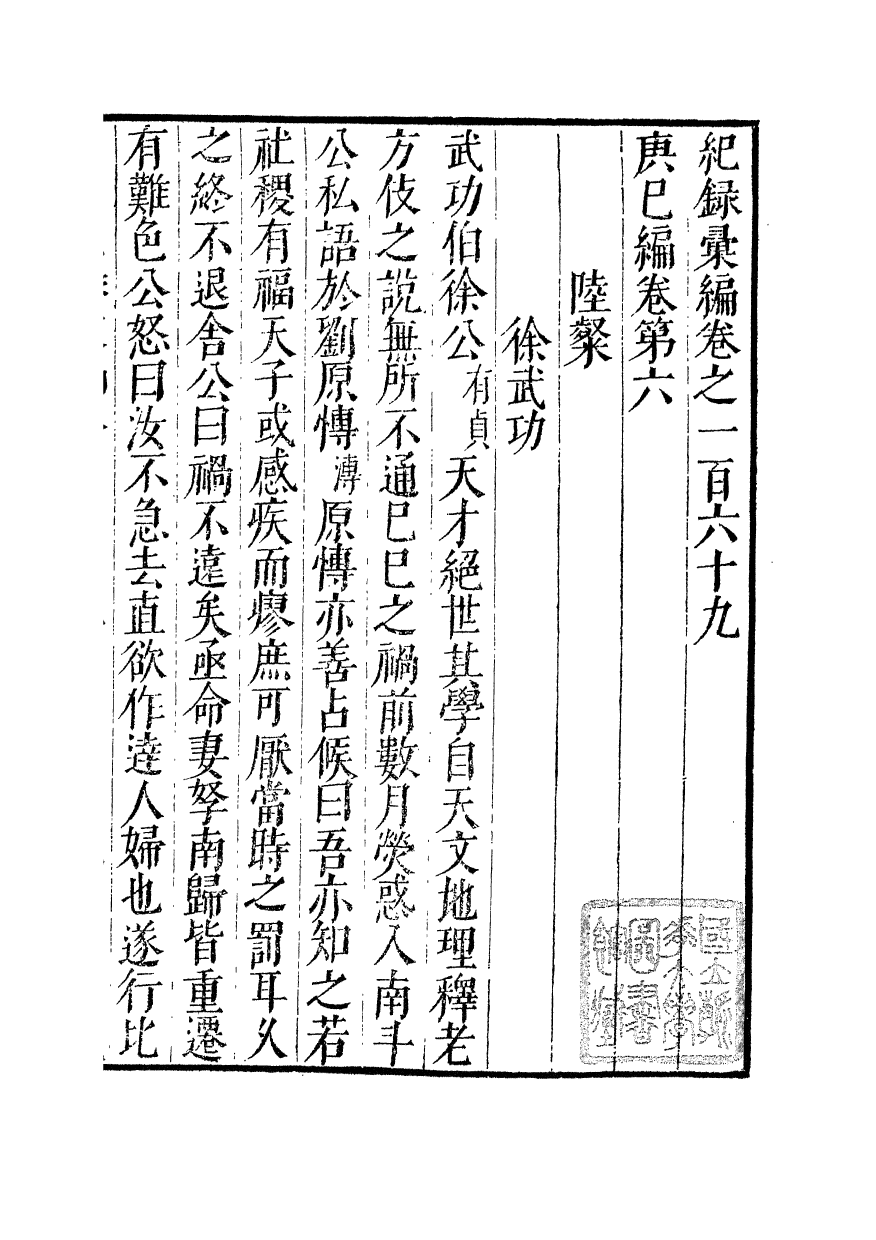 紀録彙編卷之一百六十九
庚巳編卷第六
陸粲
徐武功
武功伯徐公有貞天才絕世其學自天文地理釋老
方伎之說無所不通巳巳之禍前數月熒惑入南斗
公私語於劉原慱溥原慱亦善占候曰吾亦知之若
社稷有福天子或感疾而瘳庶可厭當時之罰耳乆
之終不退舍公曰禍不遠矣亟命妻孥南歸皆重遷
有難色公怒曰汝不急去直欲作達人婦也遂行比